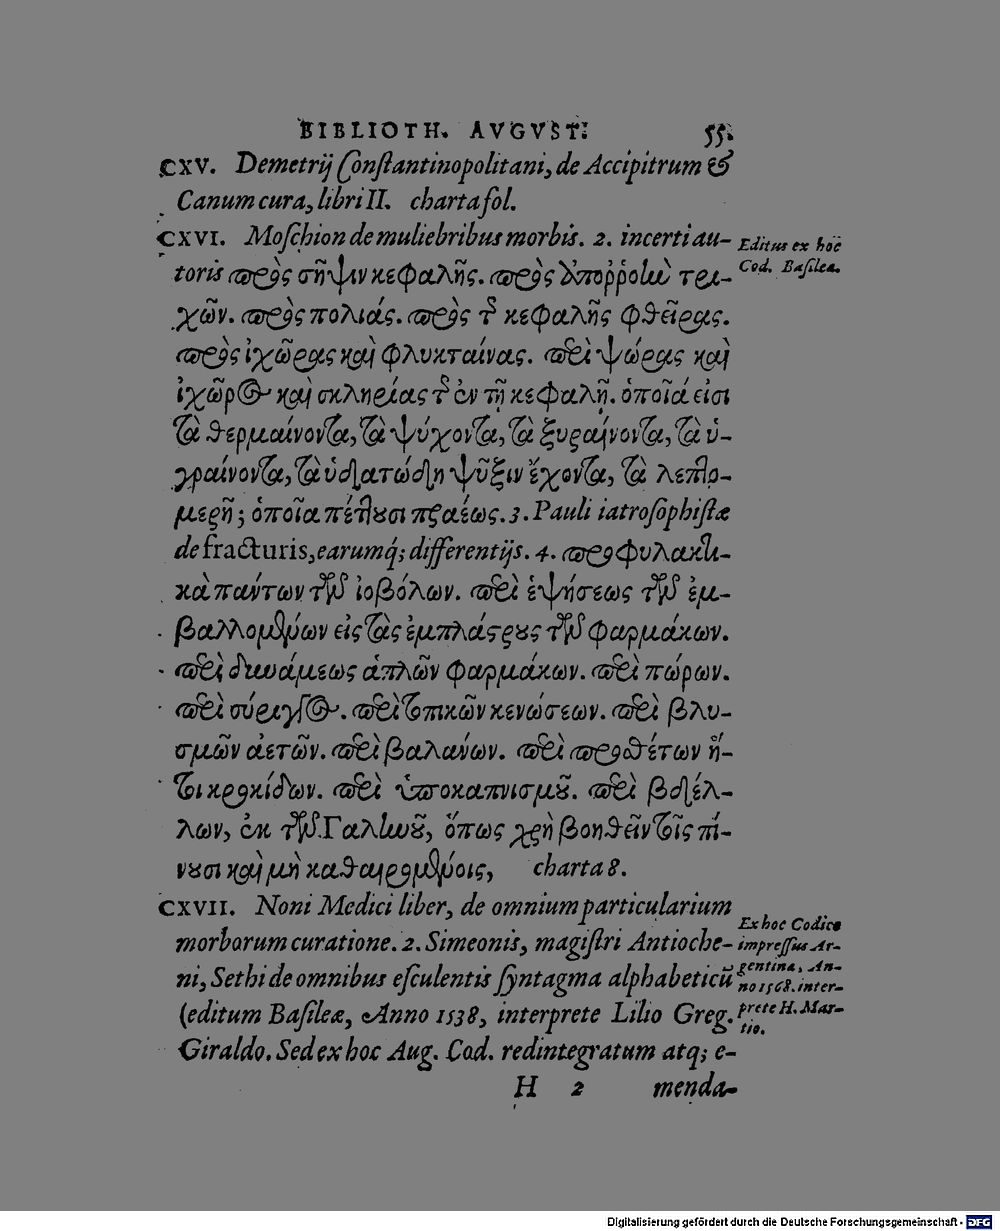 BIBLIOTH. AVGVST. 55.
CXV. Demetrij Constantinopolitani, de Accipitrum &
Canum cura, libri II. charta fol.
CXVI. Moſchion de muliebribus morbis. 2. incerti au-
toris πρὸς σῆψιν κεφαλῆς. πρὸς ἀποῤῥοὴν τρι-
χῶν. πρὸς πολιάς. πρὸς τ͂ κεφαλῆς φθεῖρας.
πρὸς ἰχῶρας καὶ φλυκταίνας. περὶ ψώρας καὶ
ἰχῶρος καὶ σκληρίας τ͂ ἐν τῇ κεφαλῇ. ὁποῖά εἰσι
τὰ θερμαίνοντα, τὰ ψύχοντα, τὰ ξυραίνοντα, τὰ ὑ-
γραίνοντα, τὰ ὑδατώδη ψῦξιν ἔχοντα, τὰ λεπτο-
μερῆ; ὁποῖα πέττουσι πραέως. 3. Pauli iatroſophiſtæ
de fracturis, earumq́; differentijs. 4. προφυλακτι-
κὰ πάντων τῶν ἰοβόλων. περὶ ἑψήσεως τῶν ἐμ-
βαλλομένων εἰς τὰς ἐμπλάστρους τῶν φαρμάκων.
περὶ δυνάμεως ἁπλῶν φαρμάκων. περὶ πώρων.
περὶ σύριγγος. περὶ τοπικῶν κενώσεων. περὶ βλυ-
σμῶν ἀετῶν. περὶ βαλάνων. περὶ προσθέτων ἤ-
τοι κροκίδων. περὶ ὑποκαπνισμοῦ. περὶ βδέλ-
λων, ἐκ τῶν Γαλίωοῦ, ὅπως χρὴ βοηθεῖν τοῖς πί-
νουσι καὶ μὴ καθαιρομένοις, charta 8.
CXVII. Noni Medici liber, de omnium particularium
morborum curatione. 2. Simeonis, magiſtri Antioche-
ni, Sethi de omnibus eſculentis ſyntagma alphabeticũ
(editum Baſileæ, Anno 1538, interprete Lilio Greg.
Giraldo. Sed ex hoc Aug. Cod. redintegratum atq; e-
H 2 menda-
Editus ex hoc
Cod. Baſilea.
Ex hoc Codice
impreſſus Ar-
gentina, An-
no 1568. inter-
prete H. Mar-
tio.
Digitalisierung gefördert durch die Deutsche Forschungsgemeinschaft - DFG